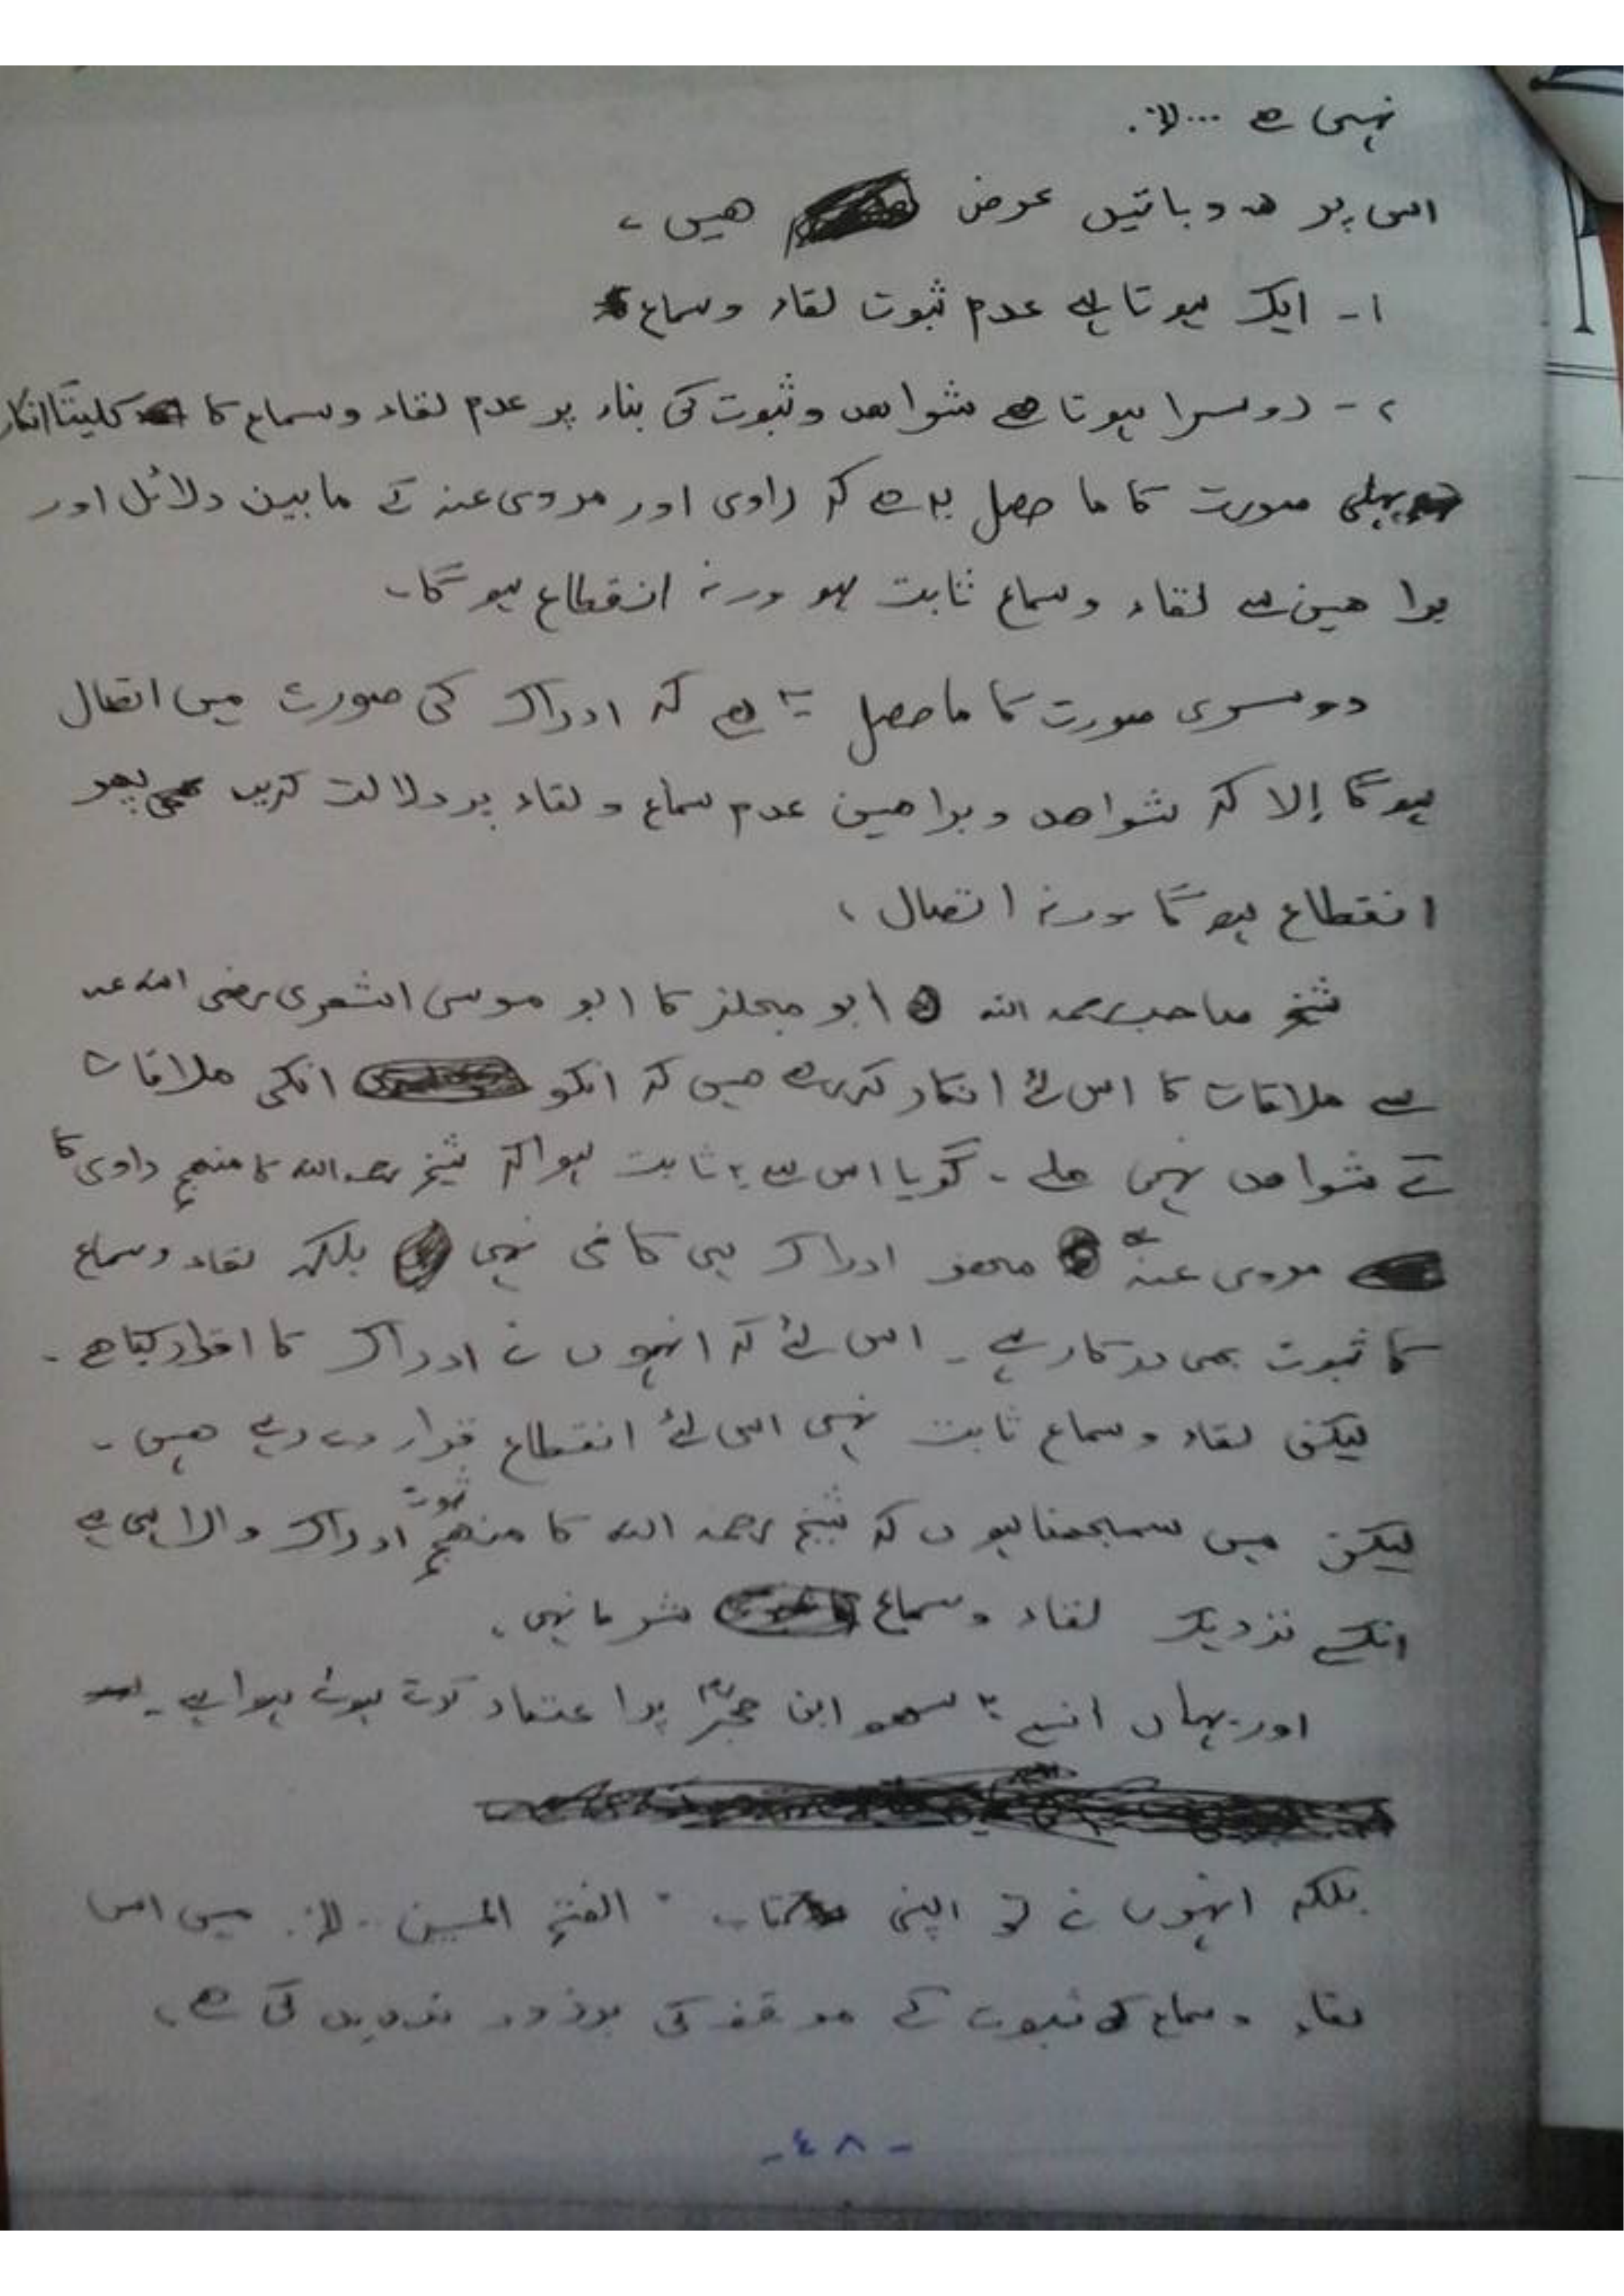 نہیں ہے ...
اس پر دو باتیں عرض ہیں ،
۱- ایک ہوتا ہے عدم ثبوت لقاء وسماع
۲- دوسرا ہوتا ہے شواھد و ثبوت کی بناء پر عدم لقاء وسماع کا کلیتاً انکار
پہلی صورت کا ما حصل یہ ہے کہ راوی اور مروی عنہ کے مابین دلائل اور
براھین سے لقاء وسماع ثابت ہو ورنہ انقطاع ہو گا۔
دوسری صورت کا ماحصل یہ ہے کہ ادراک کی صورت میں اتصال
ہو گا إلا کہ شواھد و براھین عدم سماع و لقاء پر دلالت کریں پھر
انقطاع ہو گا ورنہ اتصال ،
شیخ صاحب رحمہ اللہ ابو مجلز کا ابو موسی اشعری رضی اللہ عنہ
سے ملاقات کا اس لئے انکار کررہے ہیں کہ انکو انکی ملاقات
کے شواھد نہیں ملے ۔ گویا اس سے یہ ثابت ہوا کہ شیخ رحمہ اللہ کا منھج راوی کا
مروی عنہ سے محض ادراک ہی کافی نہیں بلکہ لقاء وسماع
کا ثبوت بھی درکار ہے ۔ اس لئے کہ انہوں نے ادراک کا اقرار کیا ہے ۔
لیکن لقاء وسماع ثابت نہیں اسی لئے انقطاع قرار دے رہے ہیں ۔
لیکن میں سمجھتا ہوں کہ شیخ رحمہ اللہ کا منھج ثبوت ادراک والا ہی ہے
انکے نزدیک لقاء وسماع شرط نہیں ،
اور یہاں انسے یہ سھو ابن حجرؒ پر اعتماد کرتے ہوئے ہوا ہے ۔
بلکہ انہوں نے تو اپنی کتاب " الفتح المبین ... میں اس
لقاء وسماع کی ثبوت کے موقف کی پرزور تردید کی ہے ،
-٤٨-